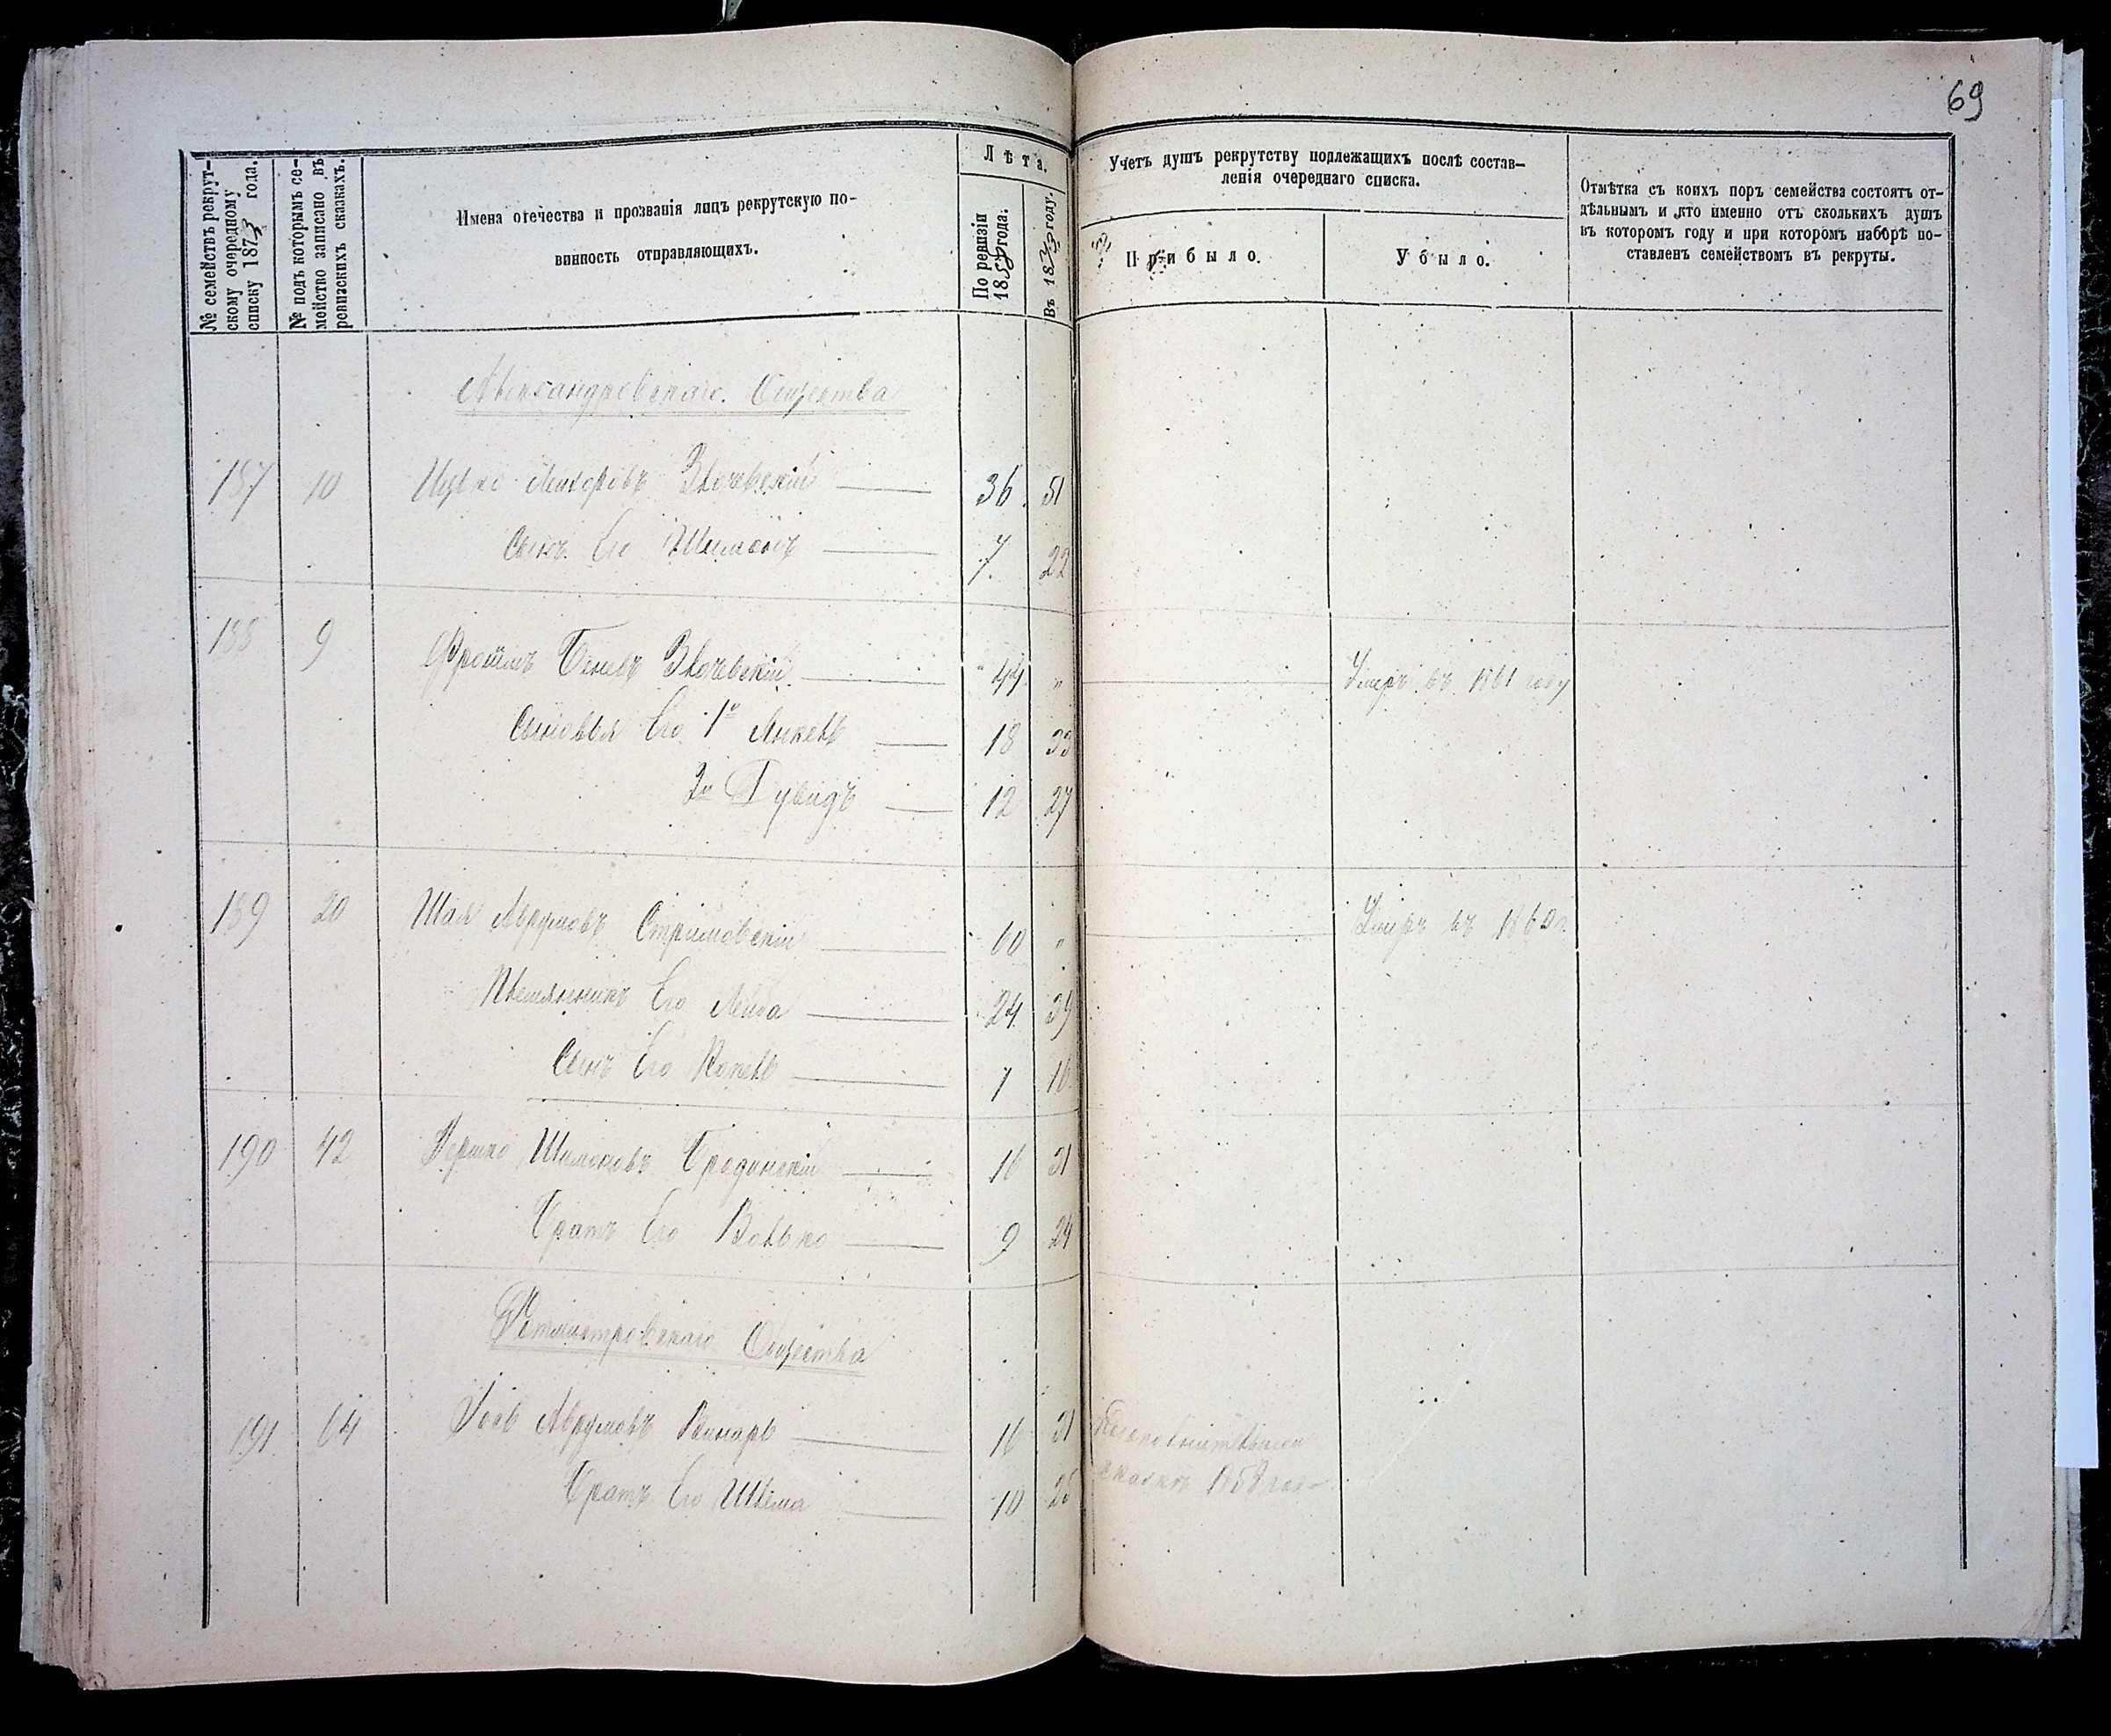 69
№ семействъ рекрут-
скому очередному
списку 1873 года.
№ подъ которымъ се-
мейство записано въ
ревизскихъ сказкахъ.
Имена отечества и прозванія лицъ рекрутскую по-
винность отправляющихъ.
Лѣта.
По ревизіи
1858 года.
Въ 1873 году.
Учетъ душъ рекрутству подлежащихъ послѣ состав-
ленія очереднаго списка.
Прибыло.
Убыло.
Отмѣтка съ коихъ поръ семейства состоятъ от-
дѣльнымъ и кто именно отъ сколькихъ душъ
въ которомъ году и при которомъ наборѣ по-
ставленъ семействомъ въ рекруты.
Александровскаго Общества
187 10 Ицько Злочевскій 36 51
Сынъ Его Шимонъ 7 22
188 9 Фроимъ Беневъ Злочевскій 44 " Умеръ въ 1861 году
Сыновья Его 1й Янкель 18 33
2й Гувидъ 12 27
189 20 Шая Аврумовъ Стримовскій 60 " Умеръ въ 1860 г.
Племянникъ Его Лейба 24 39
Сынъ Его Копель 1 16
190 42 Гершко Шимоновъ Бродянскій 16 31
Братъ Его Волько 9 24
Ротмистровскаго Общества
191 64 Іось Аврумовъ 16 31
Братъ Его Шлёма 10 25 1858 года